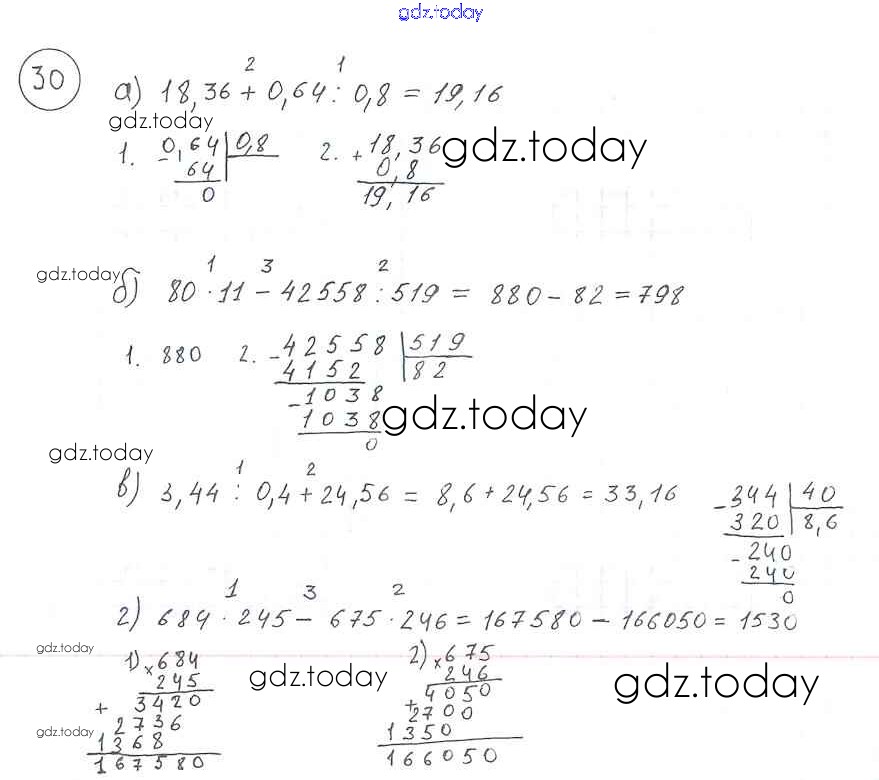 gdz.today
30
2 1
а) 18,36 + 0,64 : 0,8 = 19,16
gdz.today
1. - 0,64 | 0,8 2. + 18,36 gdz.today
64 0,8
0 19,16
gdz.today
1 3 2
б) 80 · 11 - 42558 : 519 = 880 - 82 = 798
1. 880 2. - 42558 | 519
4152 | 82
- 1038
1038 gdz.today
0
gdz.today
1 2
в) 3,44 : 0,4 + 24,56 = 8,6 + 24,56 = 33,16 - 344 | 40
320 | 8,6
- 240
240
0
1 3 2
г) 684 · 245 - 675 · 246 = 167580 - 166050 = 1530
gdz.today
1) × 684 2) × 675
245 gdz.today 246 gdz.today
+ 3420 + 4050
2736 2700
gdz.today
1368 1350
167580 166050